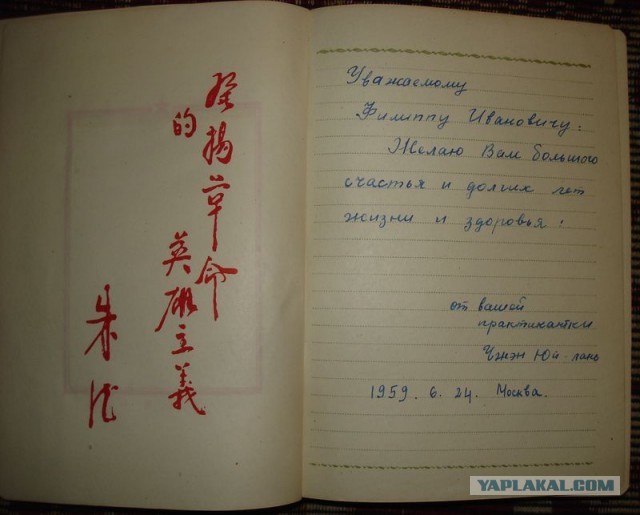 發揚革命
的英雄主義
朱德
Уважаемому
Филиппу Ивановичу:
Желаю Вам большого
счастья и долгих лет
жизни и здоровья!
от вашей
практикантки
Чжэн Юй-лань
1959. 6. 24. Москва.
YAPLAKAL.COM